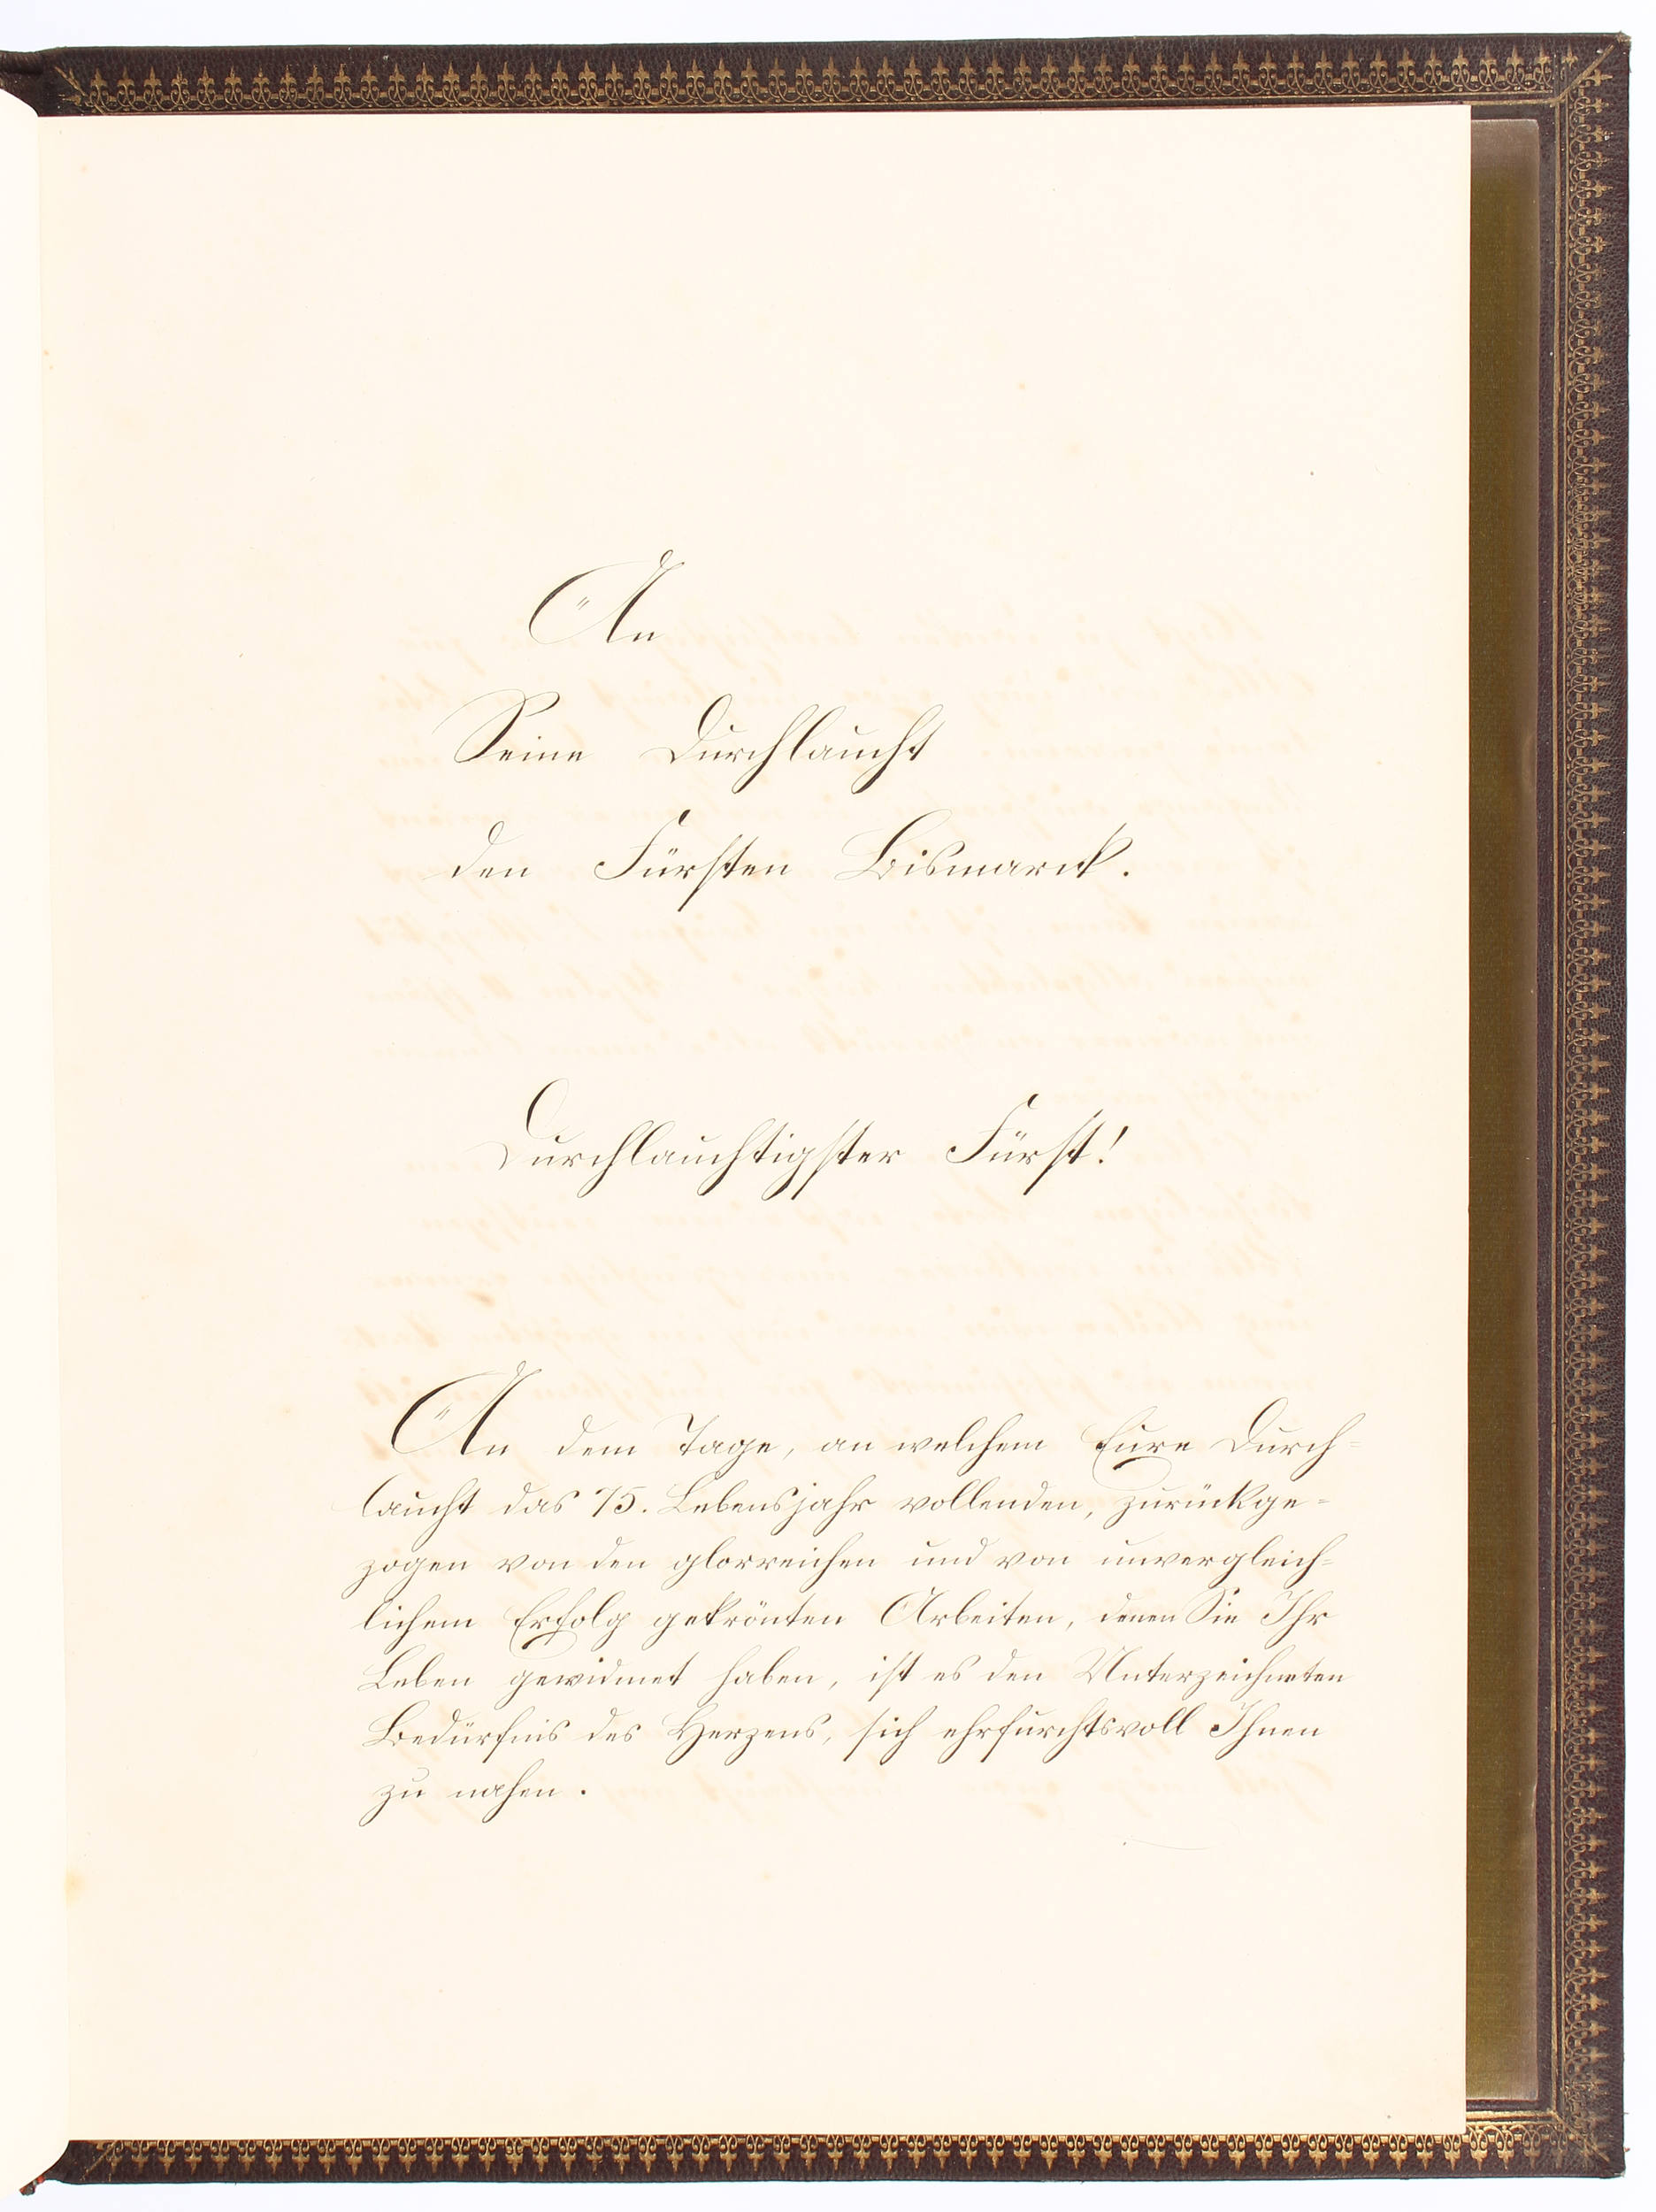 An
Seine Durchlaucht
den Fürsten Bismarck.
Durchlauchtigster Fürst!
An dem Tage, an welchem Eure Durch=
laucht das 75. Lebensjahr vollenden, zurückge=
zogen von den glorreichen und von unvergleich=
lichem Erfolg gekrönten Arbeiten, denen Sie Ihr
Leben gewidmet haben, ist es den Unterzeichneten
Bedürfnis des Herzens, sich ehrfurchtsvoll Ihnen
zu nahen.